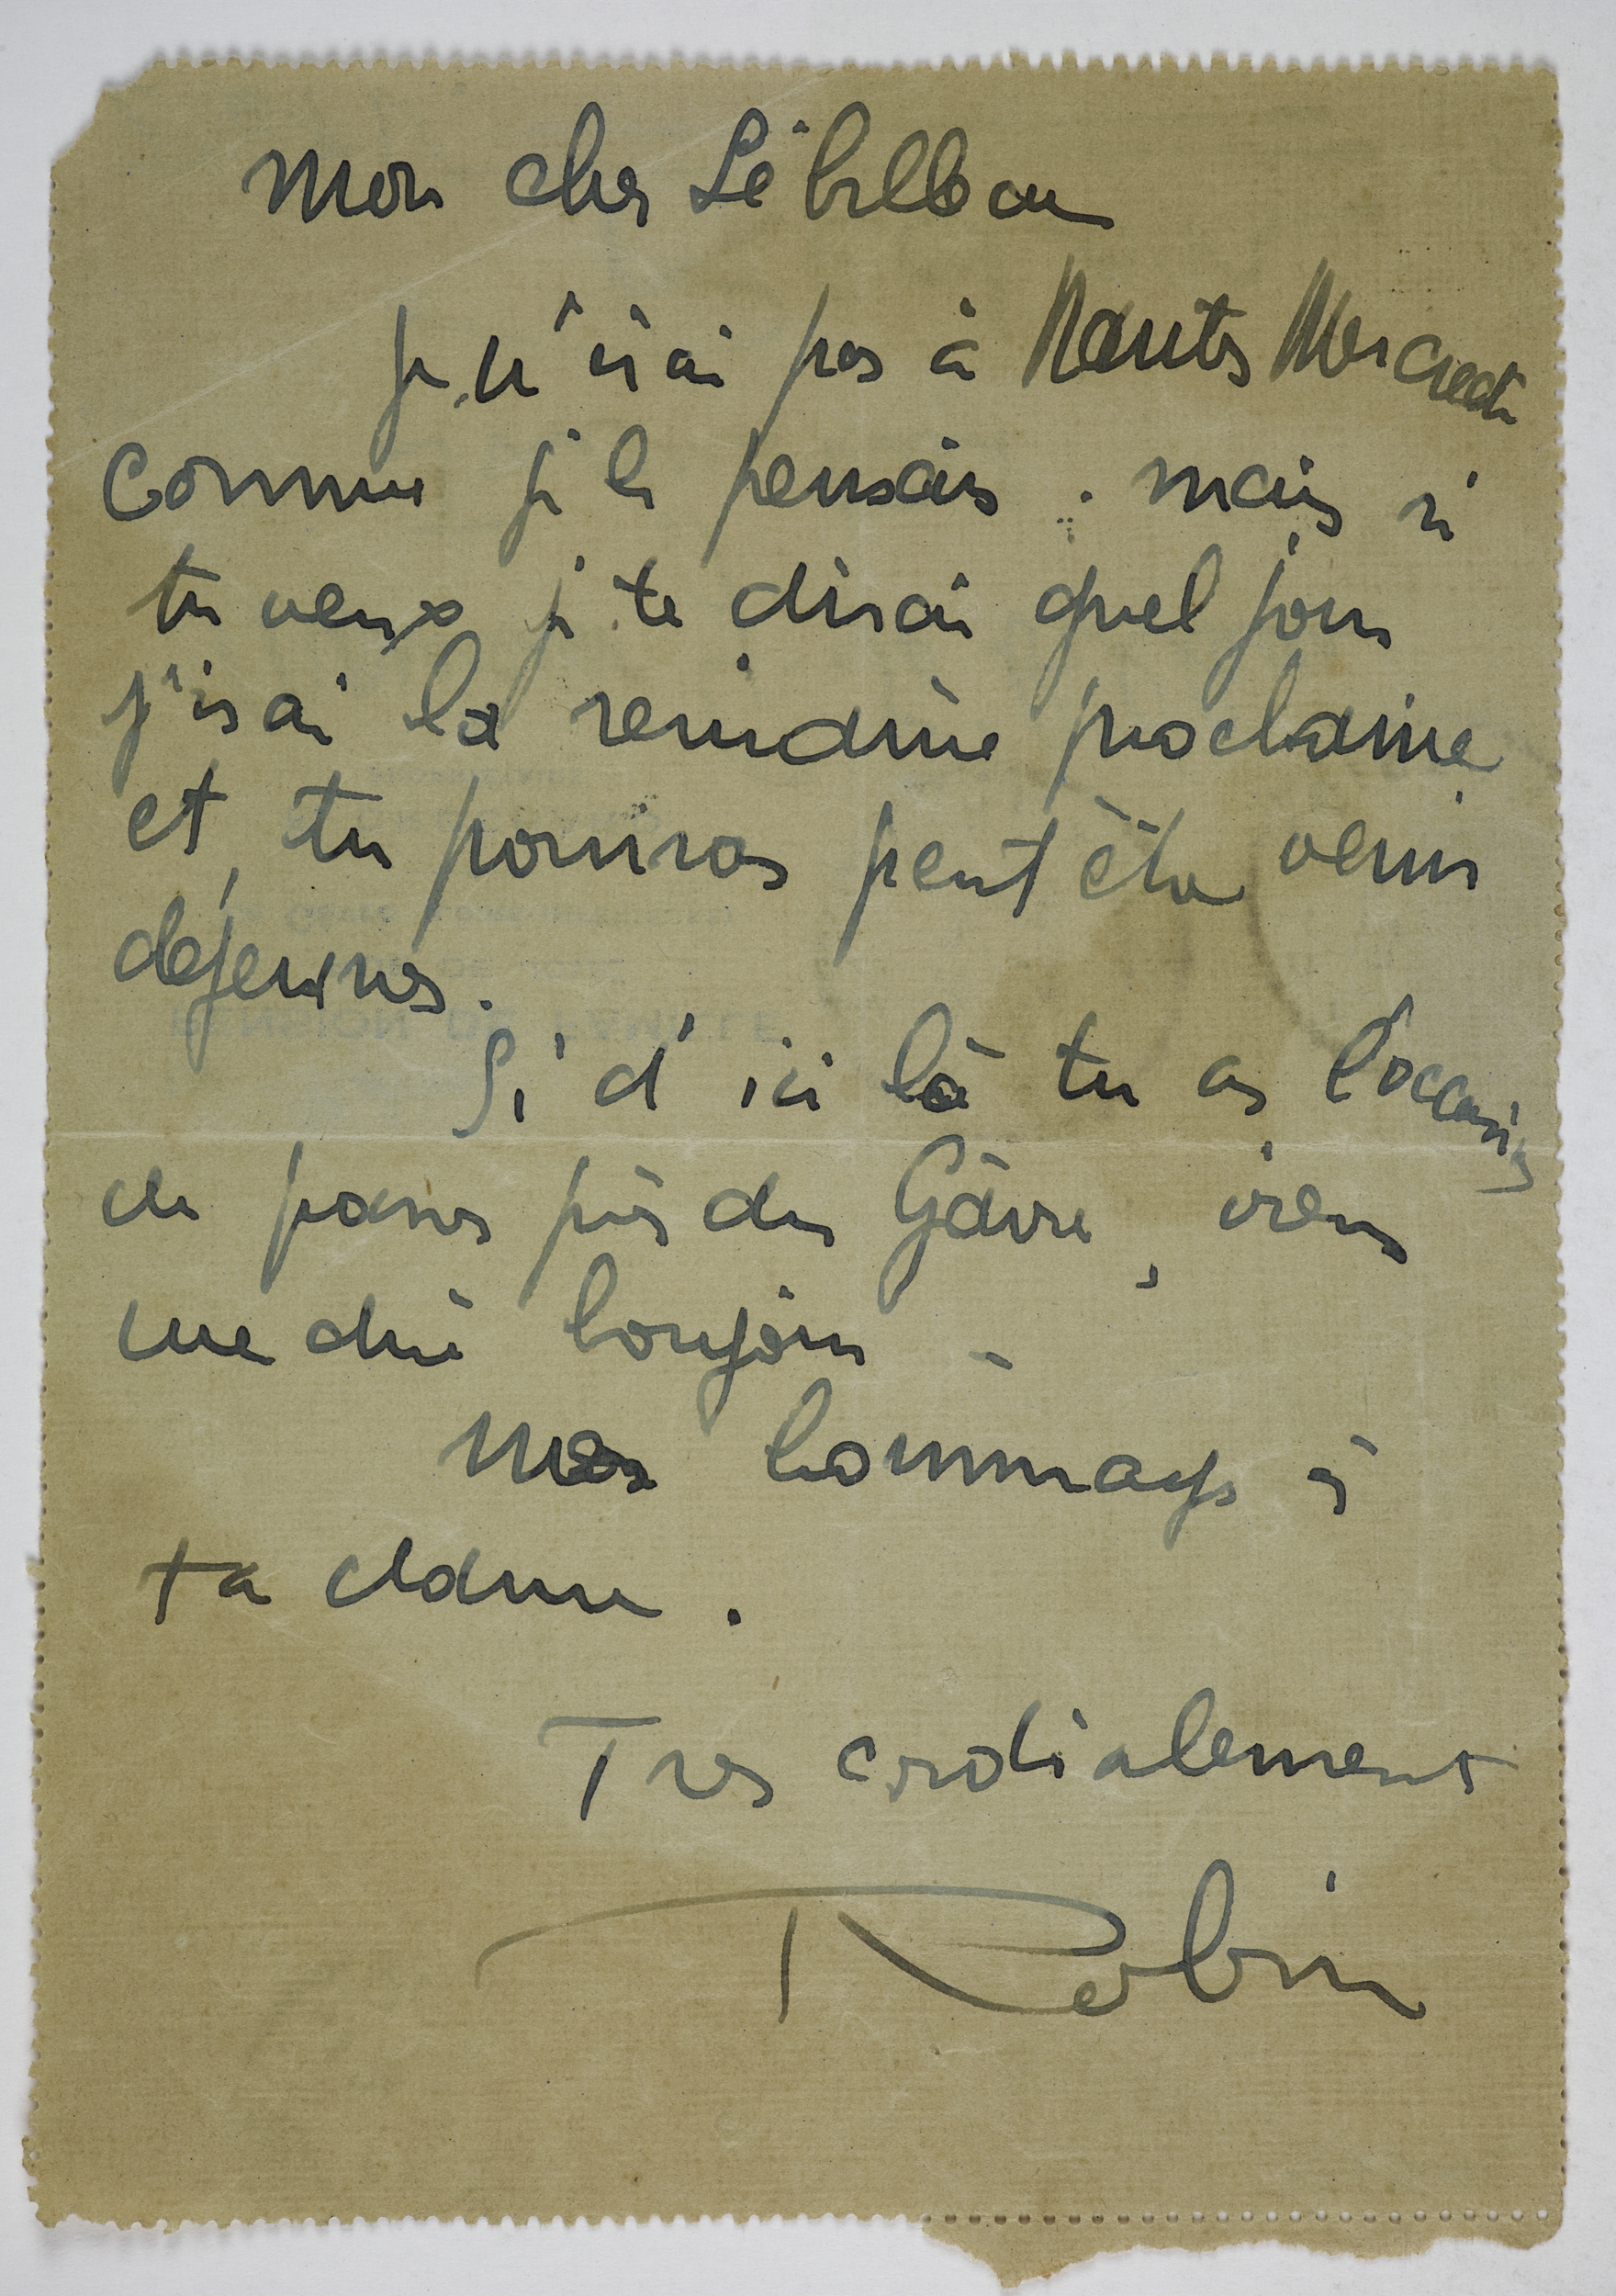 Mon cher Lébilbeau
je n'irai pas à Nantes Mercredi
comme je le pensais. mais si
tu veux je te dirai quel jour
j'irai la semaine prochaine
et tu pourras peut être venir
déjeuner.
Si d'ici là tu as l'occasion
de passer près du Gâvre, viens
me dire bonjour -
Mes hommages à
ta dame.
Tres cordialement
Robin